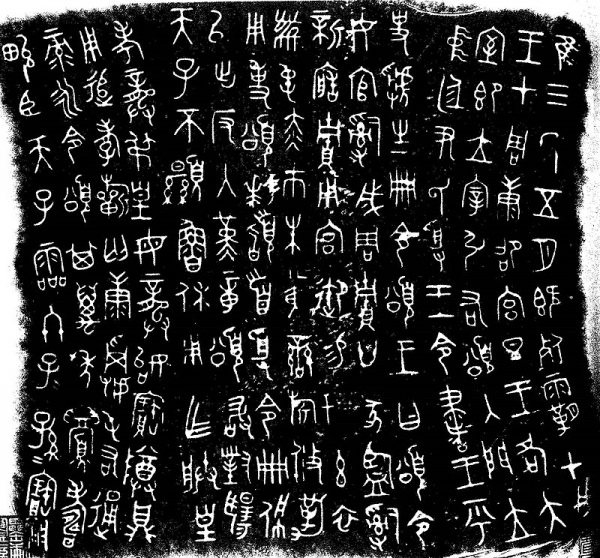 隹三年五月既死霸甲戌
王才周康卲宮旦王各大
室即立宰引右頌入門立
中廷尹氏受王令書王乎
史虢生冊令頌王曰頌令
女官𤔲成周貯廿家監𤔲
新造貯用宮御易女玄衣
黹屯赤巿朱黃䜌旂攸勒
用事頌拜𩒨首受令冊佩
以出反入堇章頌敢對揚
天子不顯魯休用乍朕皇
考龏弔皇母龏始寶尊鼎
用追孝𩁹匄康𠹉屯右通
彔永令頌其萬年眉壽
畯臣天子霝冬子子孫孫寶用